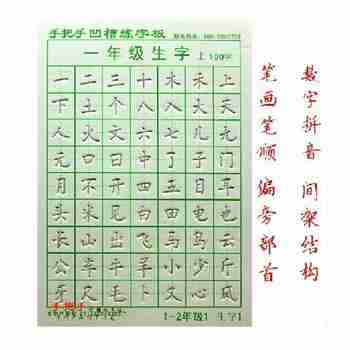 手把手 凹槽练字板
一年级生字 上 100字
一 二 三 十 木 禾 上
下 土 个 八 入 大 天
人 火 文 六 七 儿 九
无 口 日 中 了 子 门
月 不 开 四 五 目 耳
头 米 见 白 田 电 也
长 山 出 飞 马 鸟 云
公 车 牛 羊 小 少 巾
牙 尺 毛 卜 又 心 风
手把手
1-2年级1 生字1
数字拼音 间架结构
笔画笔顺 偏旁部首